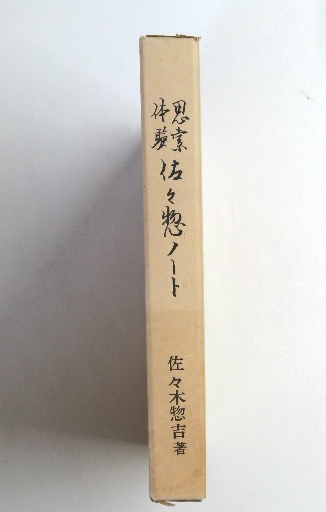 思索
体験
佐々惣ノート
佐々木惣吉著